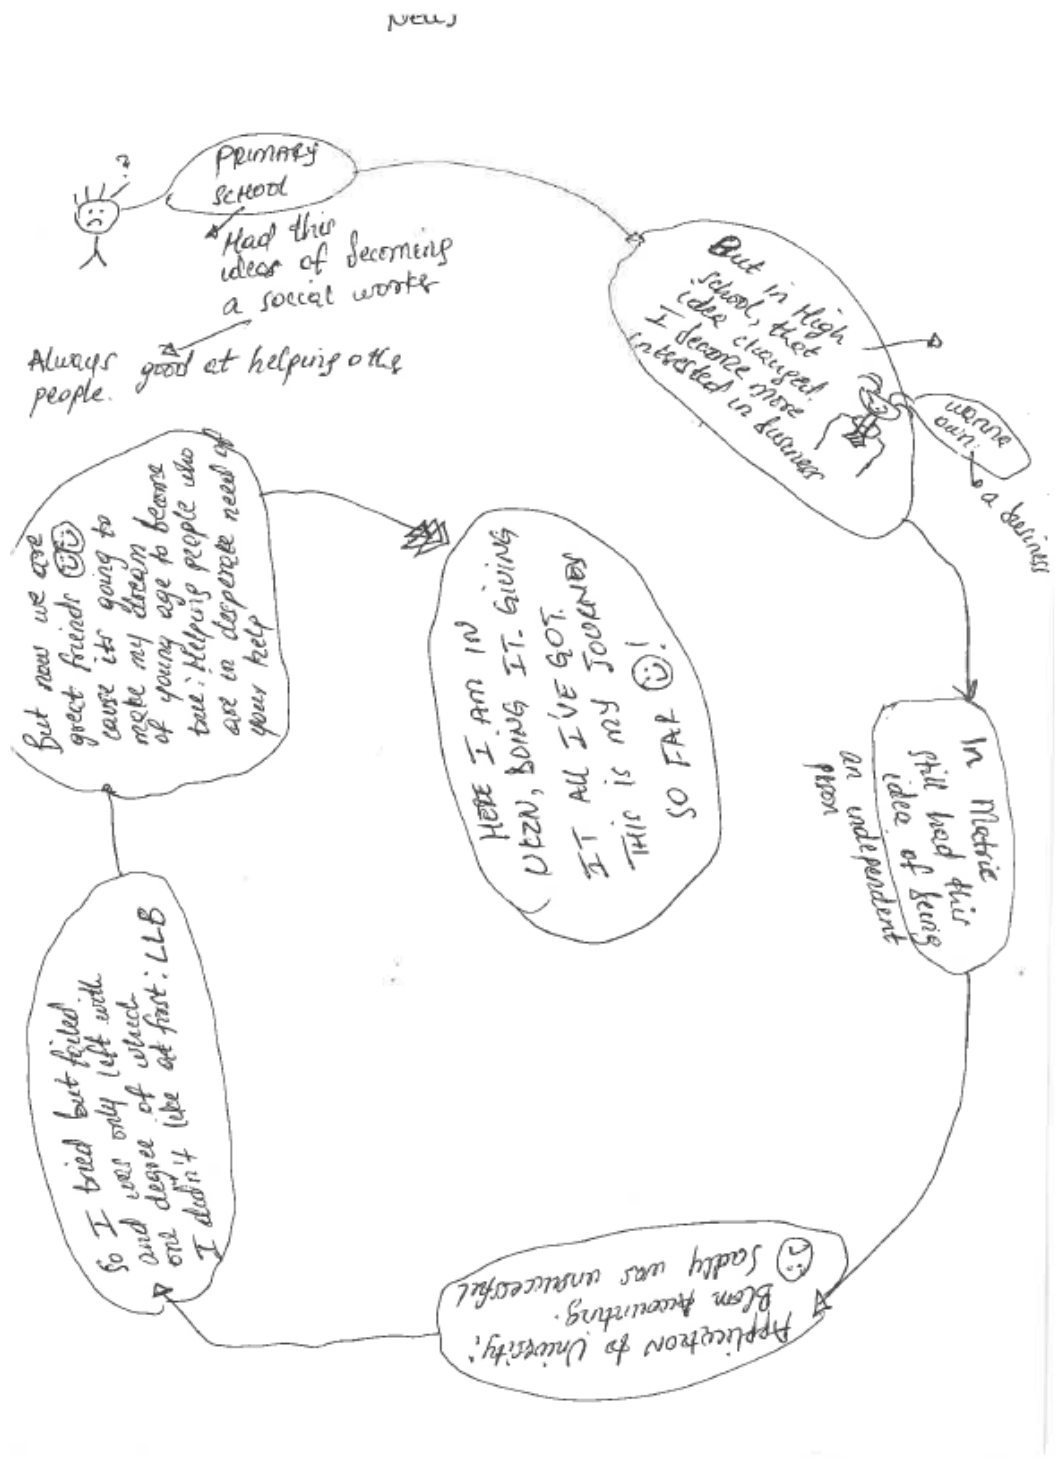 PRIMARY
SCHOOL
Had this
ideas of becoming
a social worker
Always good at helping othe
people.
But in High
school, that
idea changed.
I become more
intrested in business
wanna
own:
a business
In Matric
still had this
idea of being
an independent
Application to University;
Bcom Accounting.
Sadly was unsuccessful
So I tried but failed
and was only left with
one degree of which
I didn't like at first: LLB
But now we are
great friends
cause its going to
make my dream
of young age to become
true: Helping people who
are in desperate need of
your help
HERE I AM IN
UKZN, DOING IT. GIVING
IT ALL I'VE GOT.
THIS is my JOURNEY
SO FAR !